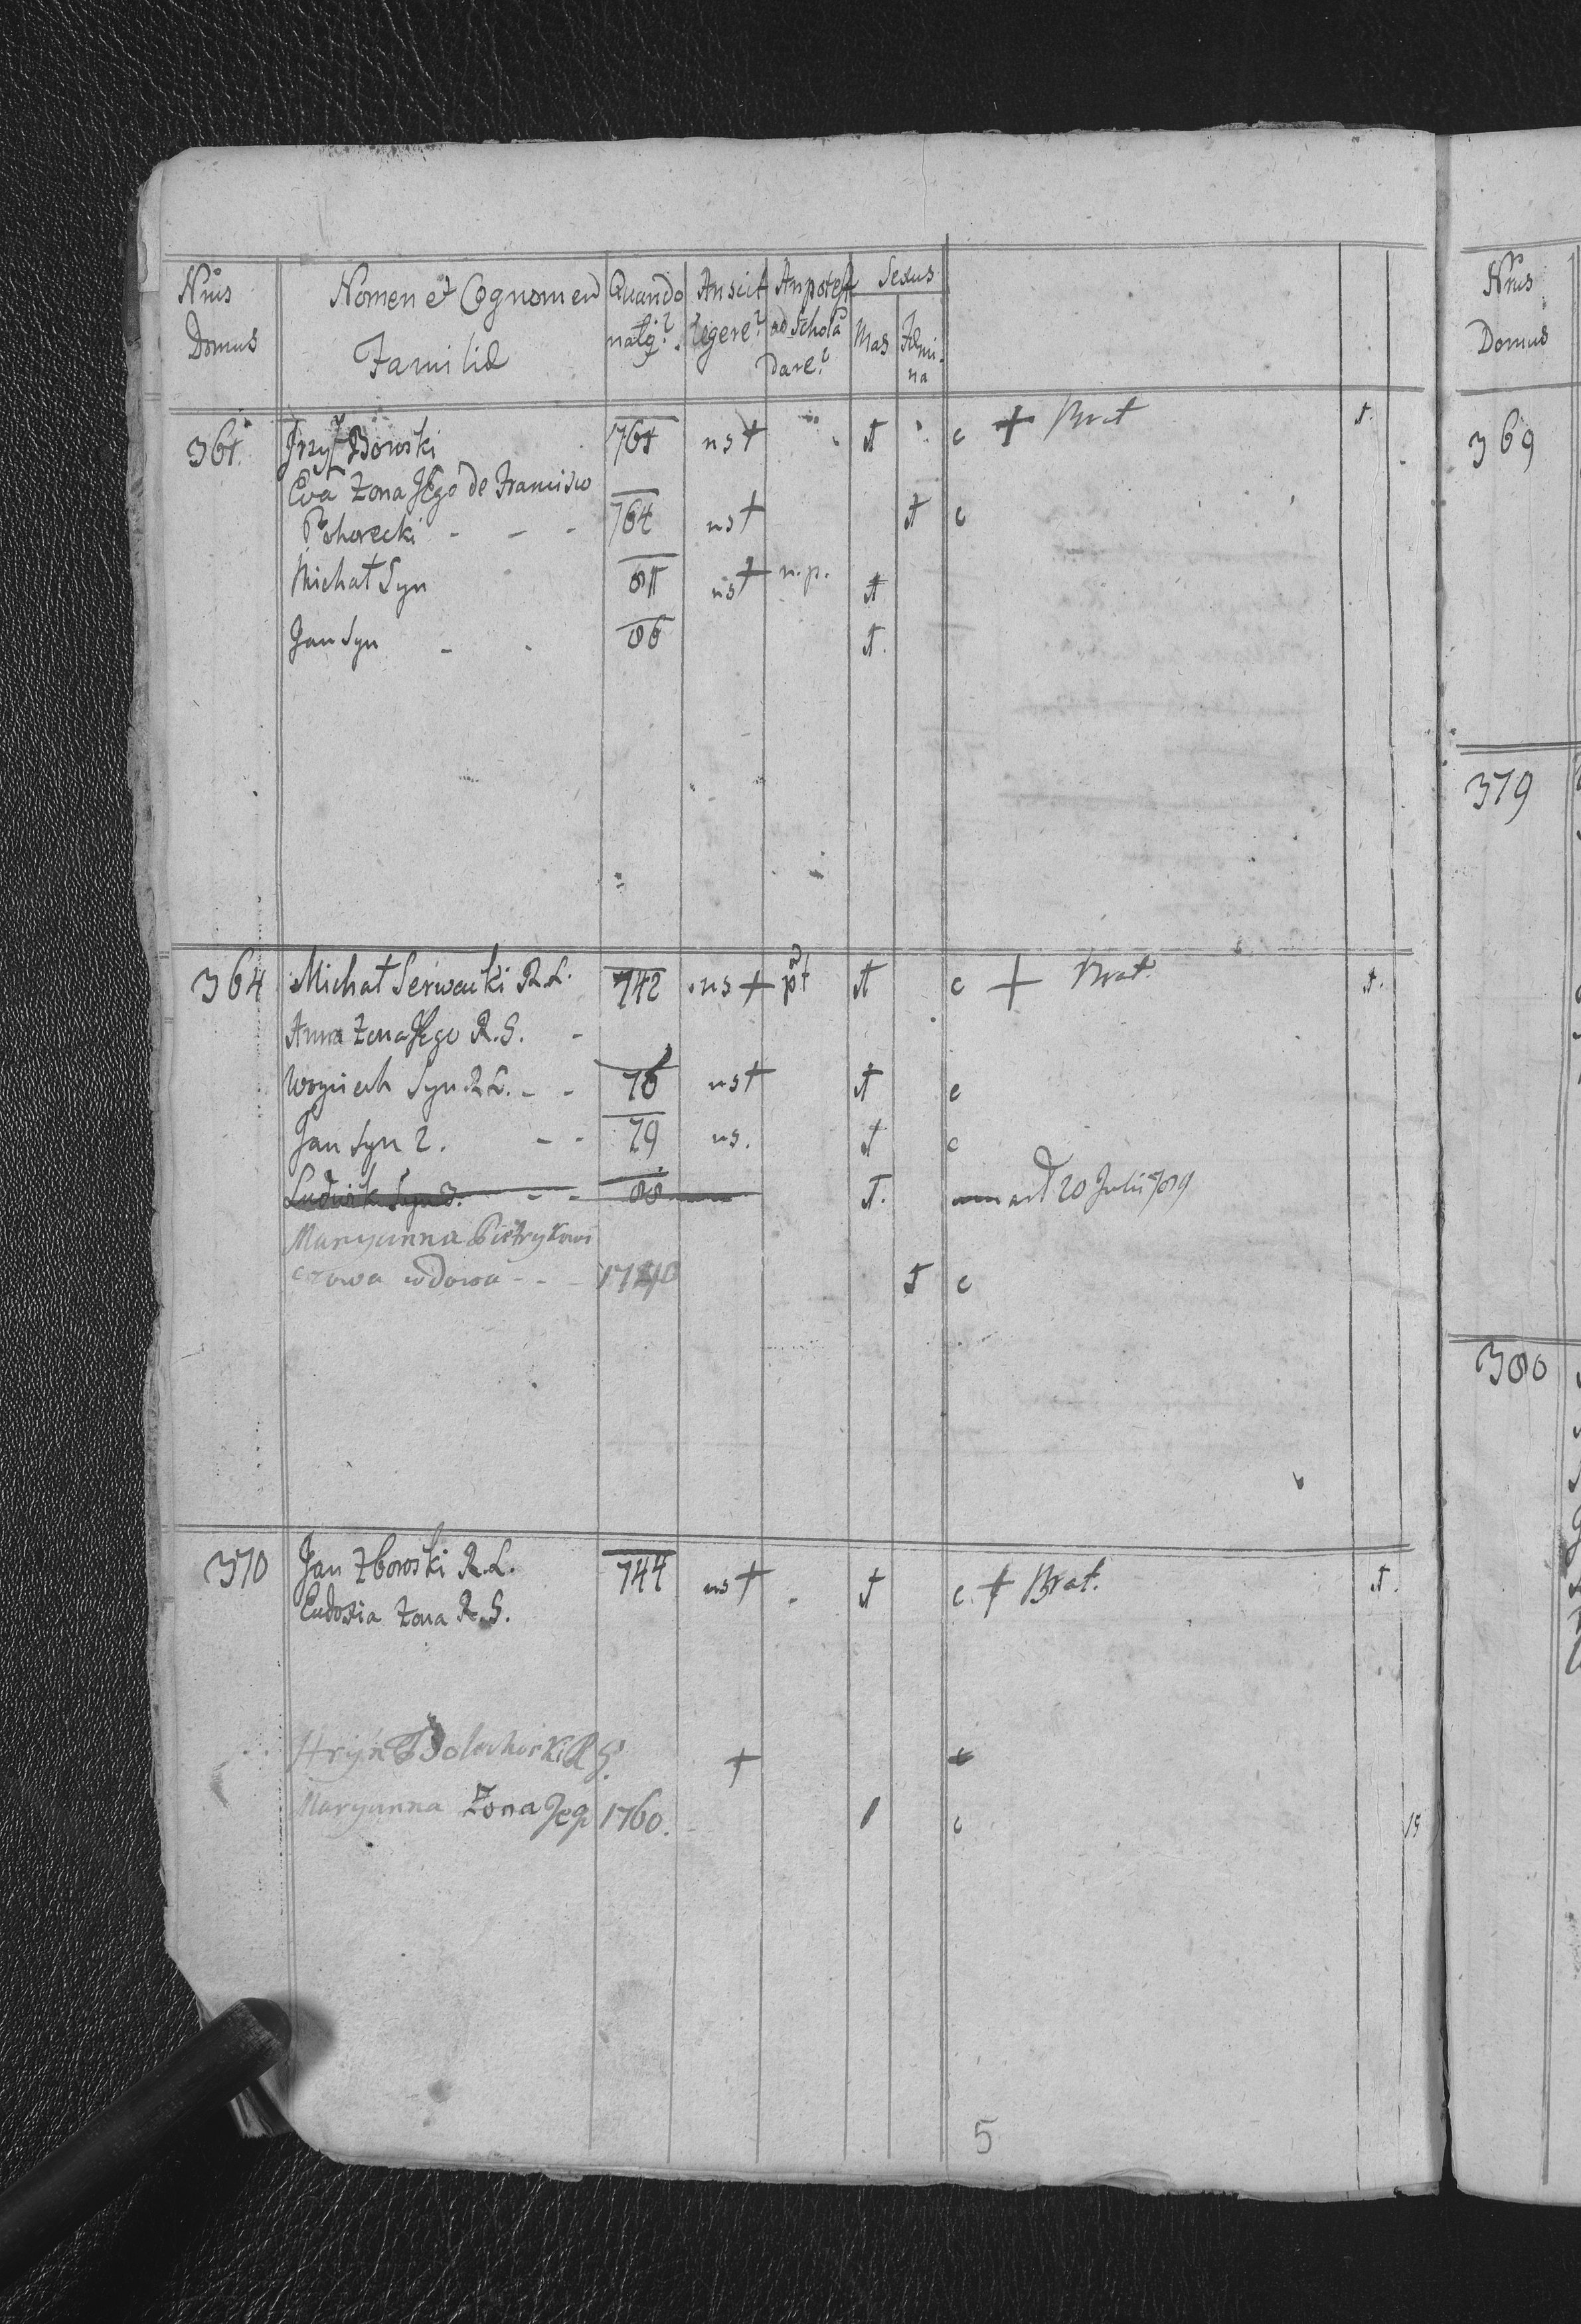 Nrus Domus
Nomen et Cognomen Familiæ
Quando natq?
An scit legere?
An potest ad Schola Dare?
Sexus
Mas
Femina
361. Bowski 765 ns + c + Brat
Eva Żona Jego de Francisco
Pohorecki - - - 764 ns + c
Michał Syn ns + n.p.
Jan Syn - 86
364 Michał Serwacki R.L. 742 ns + c + Brat.
Anna Żona Jego R.S. -
Woyciech Syn R.L. - - 76 ns + c
Jan Syn 2. - - 79 ns. c
Ludwik Syn 3. - - 88 20 Julii 789
Maryanna Pietrykowi
czowa wdowa - - - c
370 Jan Zboroski R.L. 744 ns + c. + Brat.
Eudosia Żona R.S.
Hryń Bolechoski R S. +
Maryanna Żona Jego 1760. c
15
5
Nrus
Domus
369
379
380